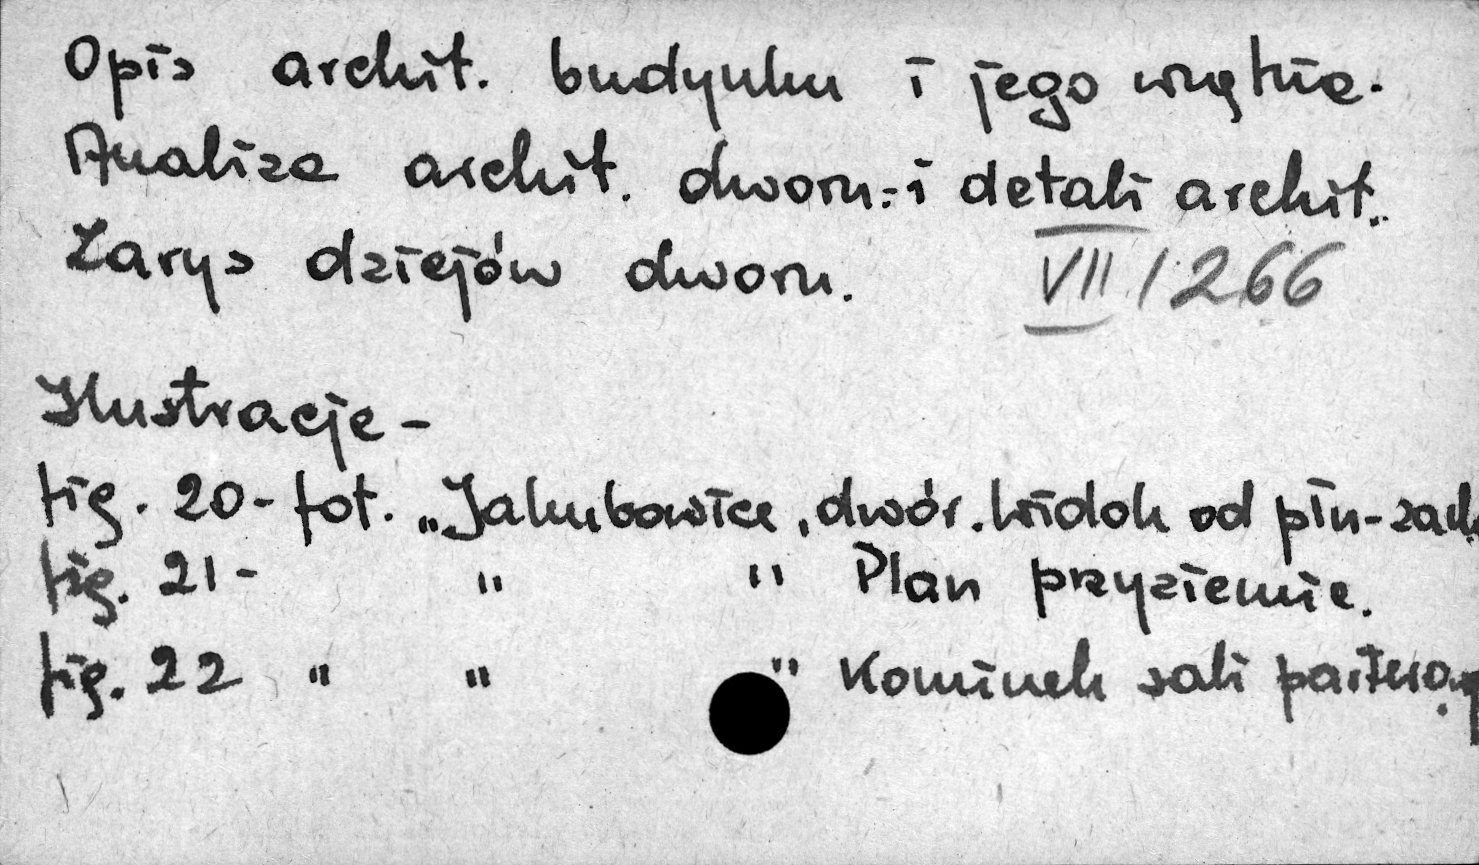 Opis archit. budynku i jego wnętrza.
Analiza archit. dworu i detali archit.
Zarys dziejów dworu. VII/266
Ilustracje -
fig. 20 - fot. „Jakubowice, dwór. Widok od płn-zach.
fig. 21 - " " Plan przyziemia.
fig. 22 " " " Kominek sali parterowej